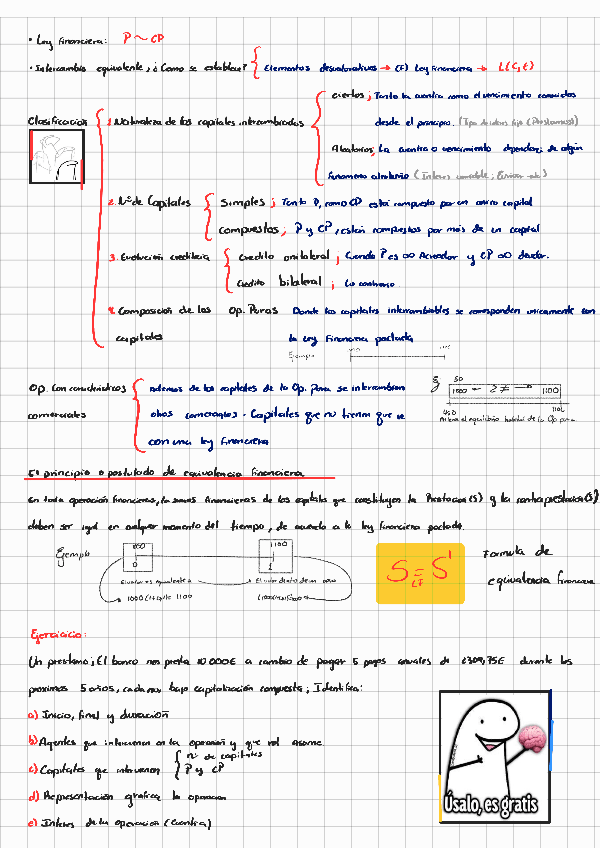 • Ley financiera: P ~ CP
• Intercambio equivalente, ¿Como se establece? { Elementos desvalorativos → (F) Ley financiera → L(C,t)
Clasificación
1. Naturaleza de los capitales intercambiados
ciertos; Tanto la cuantía como el vencimiento conocidos
desde el principio. (Tipo de interes fijo (Prestamos))
Aleatorios; La cuantia o vencimiento dependen de algún
fenomeno aleatorio
2. Nº de Capitales
Simples; Tanto P, como CP estái compuesto por un único capital
compuestos; P y CP, están compuestos por más de un capital
3. Evolución crediticia
Credito unilateral; Cuando P es ∞ Acreedor y CP ∞ deudor.
Credito bilateral; Lo contrario
4. Composición de los capitales
Op. Puras Donde los capitales intercambiables se corresponden unicamente con
la ley financiera pactada
Ejemplo
Op. Con características comerciales
ademas de los capitales de la Op. Pura se intercambian
otros comerciales. Capitales que no tienen que ver
con una ley financiera
50
1000 1100
1100
el equilibrio de la Op pura
5º principio o postulado de equivalencia financiera
En toda operación financieras, la sumas financieras de los capitales que constituyen la Prestacion(S) y la contraprestacion(S')
deben ser igual en cualquier momento del tiempo, de acuerdo a la ley financiera pactada.
Ejemplo
1100
0 1
El valor es equivalente a
El valor dentro de un
S = S'
LF
Formula de
equivalencia financiera
Ejercicio:
Un prestamo; El banco nos presta 10000€ a cambio de pagar 5 pagos anuales de 2309,75€ durante los
proximos 5 años, cada uno bajo capitalización compuesta; Identifica:
a) Inicio, final y duración
b) Agentes que intervienen en la operación y que rol asume.
c) Capitales que intervienen { nº de capitales
P y CP
d) Representación grafica la operacion
e) Interes de la operación (Cuantia)
Úsalo, es gratis